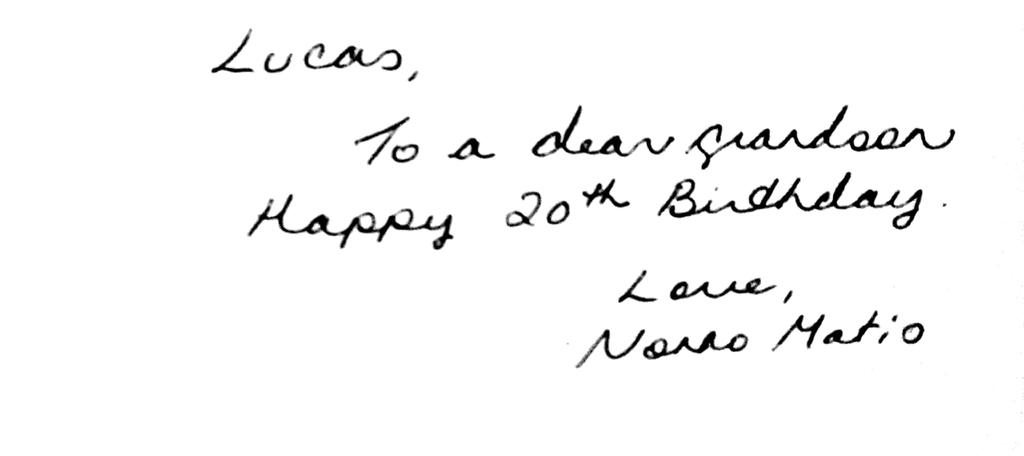 Lucas,
To a dear grandson
Happy 20th Birthday.
Love,
Nonno Matio